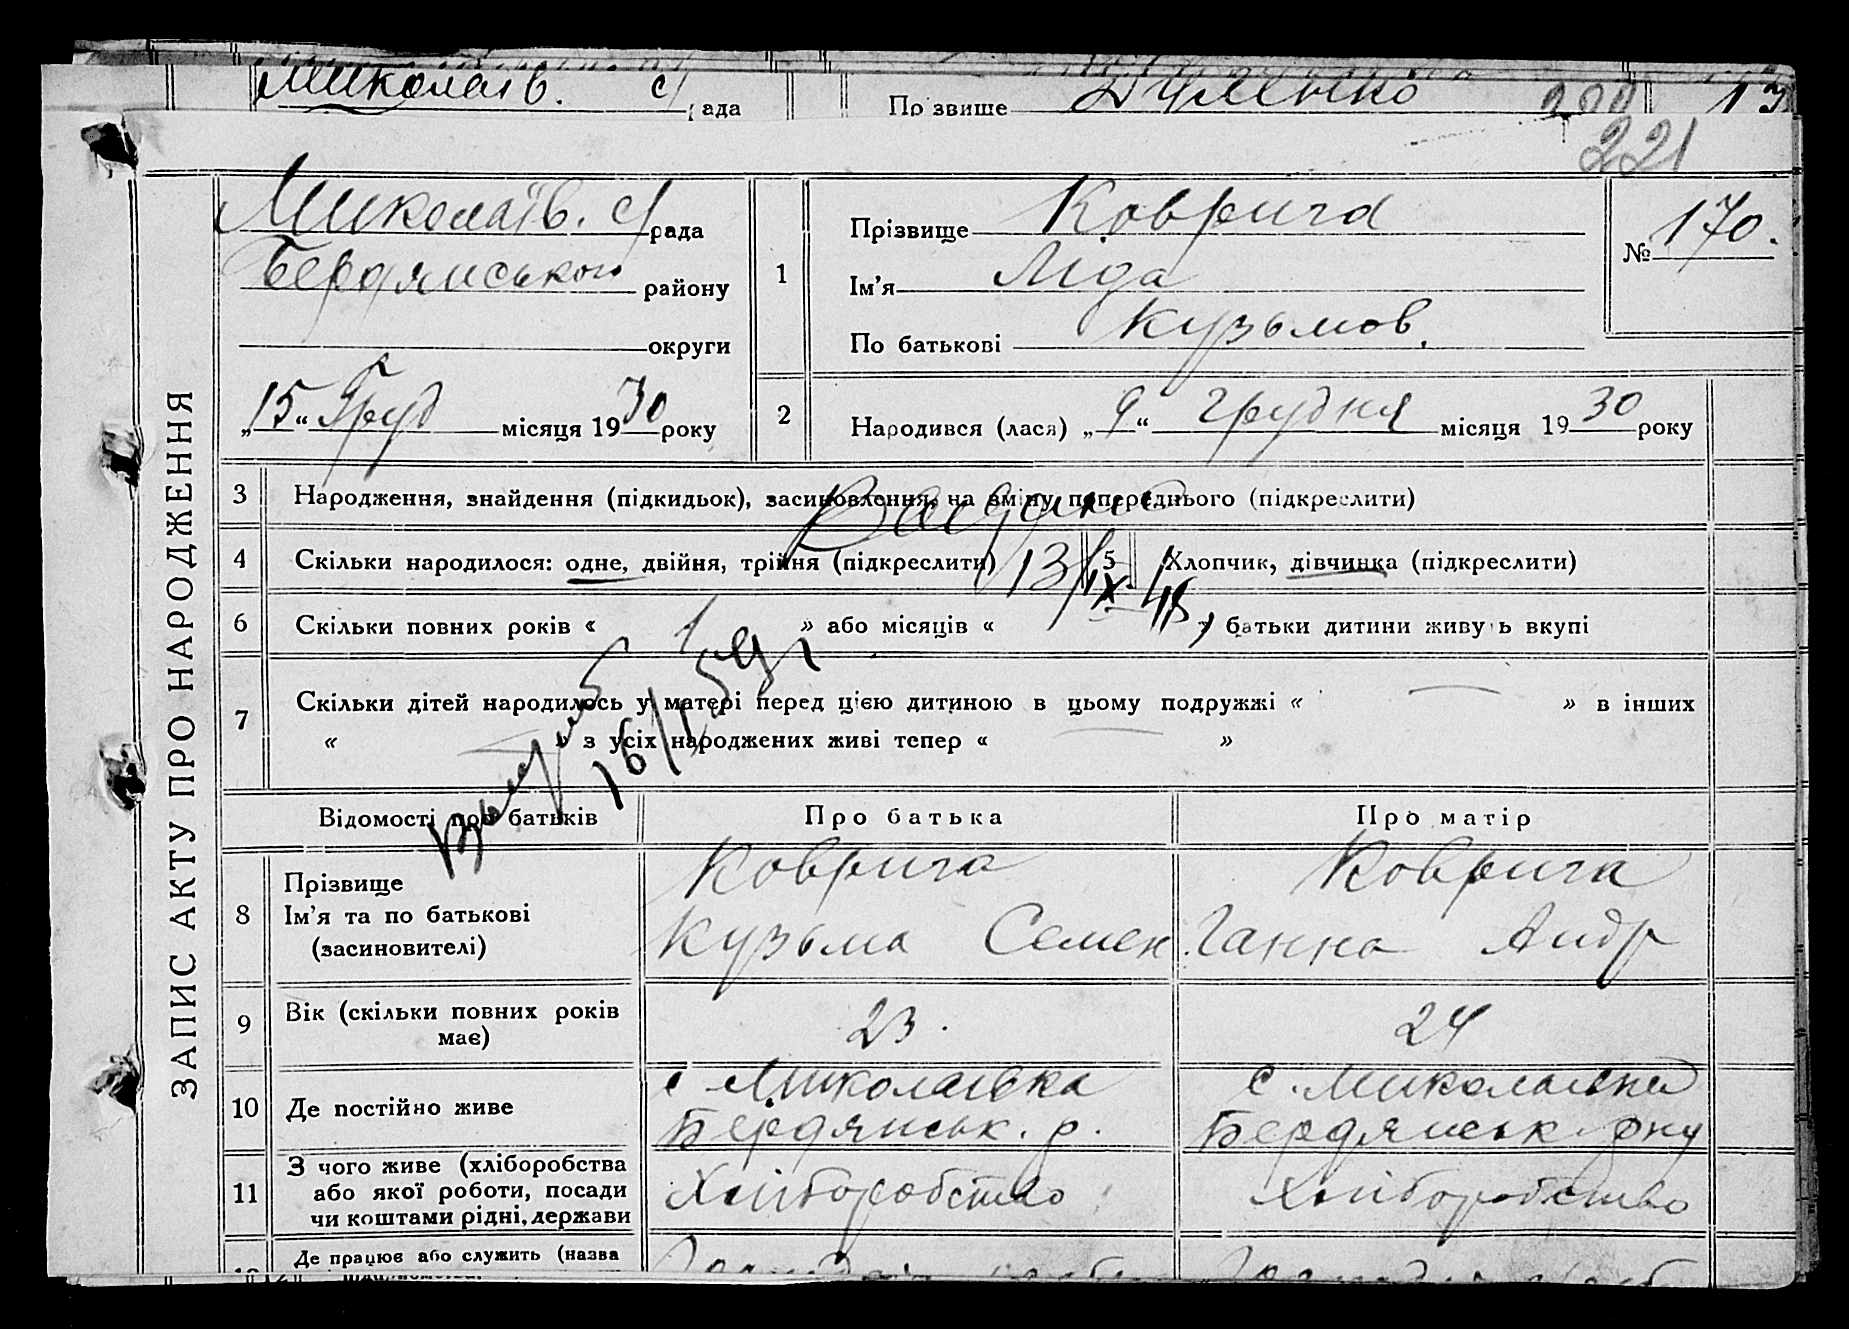 Миколаїв. с/рада Прізвище
221
ЗАПИС АКТУ ПРО НАРОДЖЕННЯ
Миколаїв. с/рада
Бердянського району
округи
„15“ Груд місяця 1930 року
1
Прізвище Коврига
Ім'я Ліда
По батькові Кузьмов.
№ 170.
2
Народився (лася) „9“ грудня місяця 1930 року
3 Народження, знайдення (підкидьок), засиновлення, на зміну попереднього (підкреслити)
Видано
4 Скільки народилося: одне, двійня, трійня (підкреслити) 5 Хлопчик, дівчинка (підкреслити)
13/IX 48
6 Скільки повних років « 1 » або місяців « » батьки дитини живуть вкупі
7 Скільки дітей народилось у матері перед цією дитиною в цьому подружжі « — » в інших
« — » з усіх народжених живі тепер « — »
16/I 59
Відомості про батьків Про батька Про матір
8 Прізвище
Ім'я та по батькові
(засиновителі)
Коврига
Кузьма Семен
Коврига
Ганна Андр
9 Вік (скільки повних років
має)
23.
24
10 Де постійно живе
с Миколаївка
Бердянськ. р.
с. Миколаївка
Бердянськ. рну
11 З чого живе (хліборобства
або якої роботи, посади
чи коштами рідні, держави
Хліборобство
Хліборобство
Де працює або служить (назва